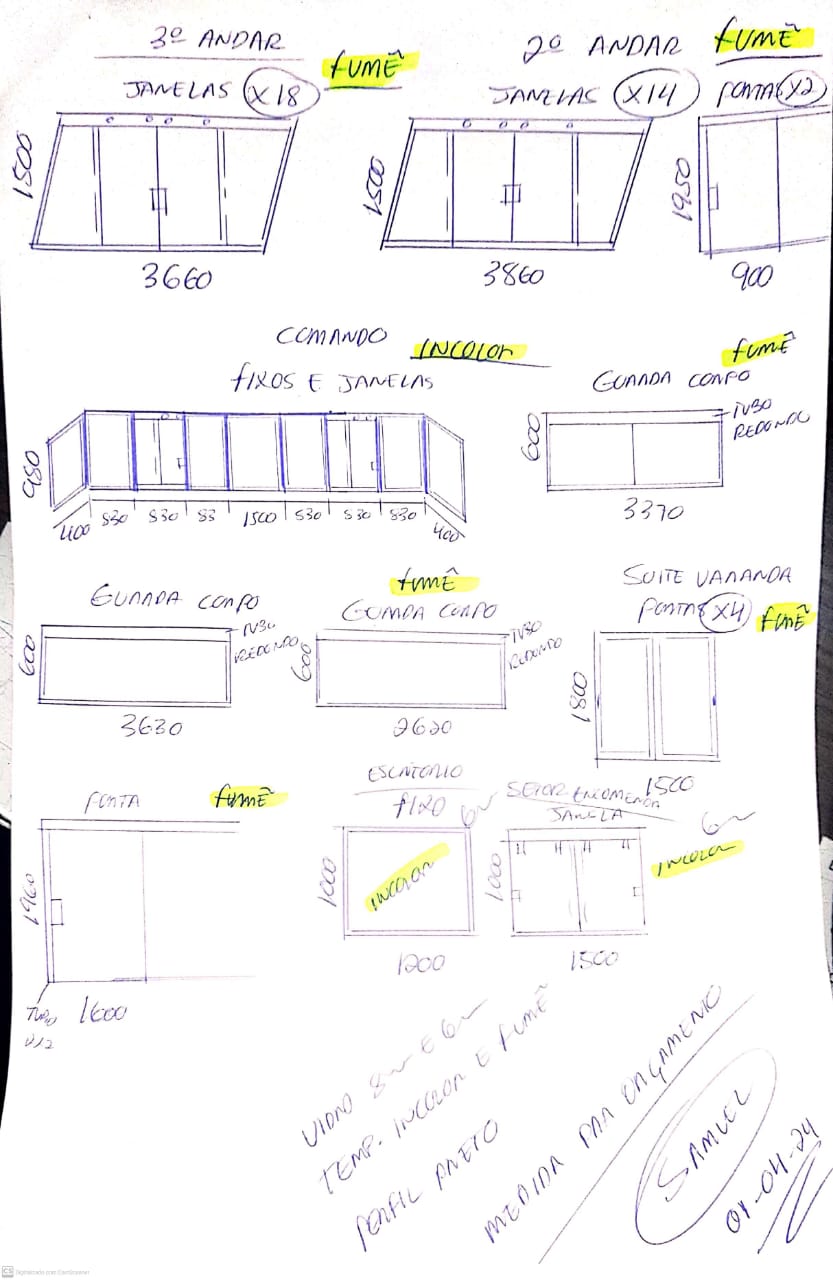 3º ANDAR
FUMÊ
JANELAS X18
1500
3660
2º ANDAR
FUMÊ
JANELAS X14
PORTAS X2
1500
3860
1950
900
COMANDO
INCOLOR
FIXOS E JANELAS
950
400 530 530 53 1500 530 530 830 400
FUMÊ
GUARDA CORPO
TUBO
REDONDO
600
3370
GUARDA CORPO
TUBO
REDONDO
600
3630
FUMÊ
GUARDA CORPO
TUBO
REDONDO
600
2620
SUITE VARANDA
PORTAS X4
FUMÊ
1800
1500
PORTA
FUMÊ
1960
TUBO
1600
ESCRITORIO
FIXO
6
1000
INCOLOR
1200
SETOR ENCOMENDA
JANELA
6
INCOLOR
1000
1500
VIDRO 8 E 6
TEMP. INCOLOR E FUMÊ
PERFIL PRETO
MEDIDA PARA ORÇAMENTO
SAMUEL
01-04-24
CS Digitalizado com CamScanner